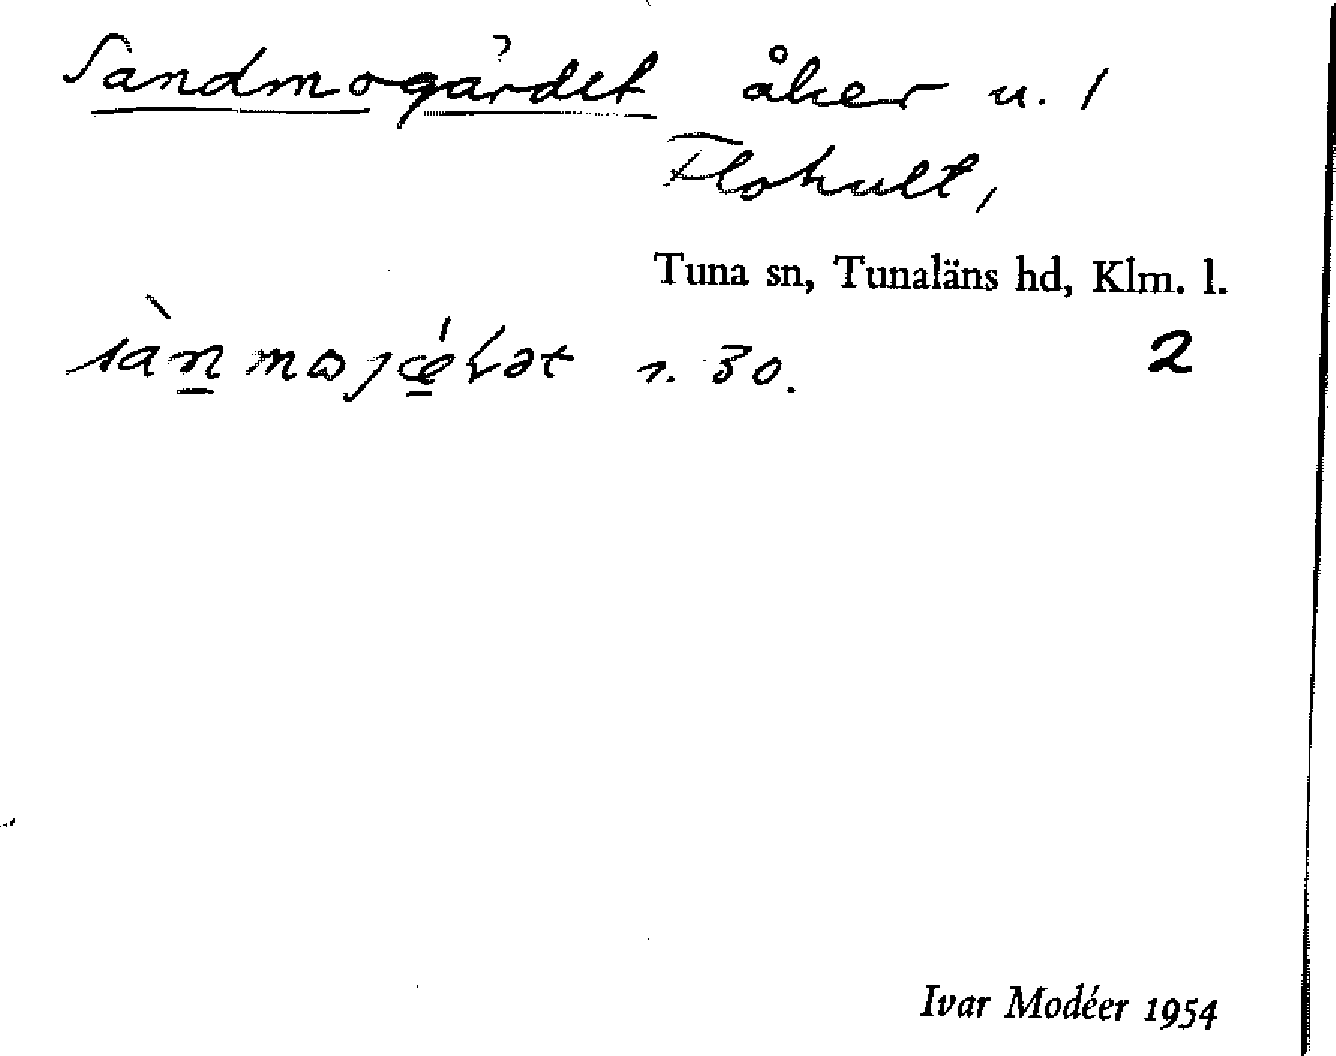 Sandmogärdet åker u. 1
Flohult,
Tuna sn, Tunaläns hd, Klm. l.
s. 30. 2
Ivar Modéer 1954